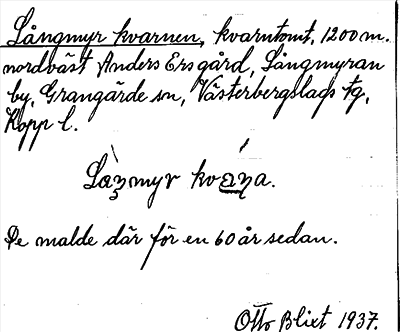 Långmyr kvarnen, kvarntomt, 1200 m.
nordväst Anders Ersgård, Långmyran
by, Grangärde sn, Västerbergslags tg,
Kopp l.
kv
De malde där för en 60 år sedan.
Otto Blixt 1937.